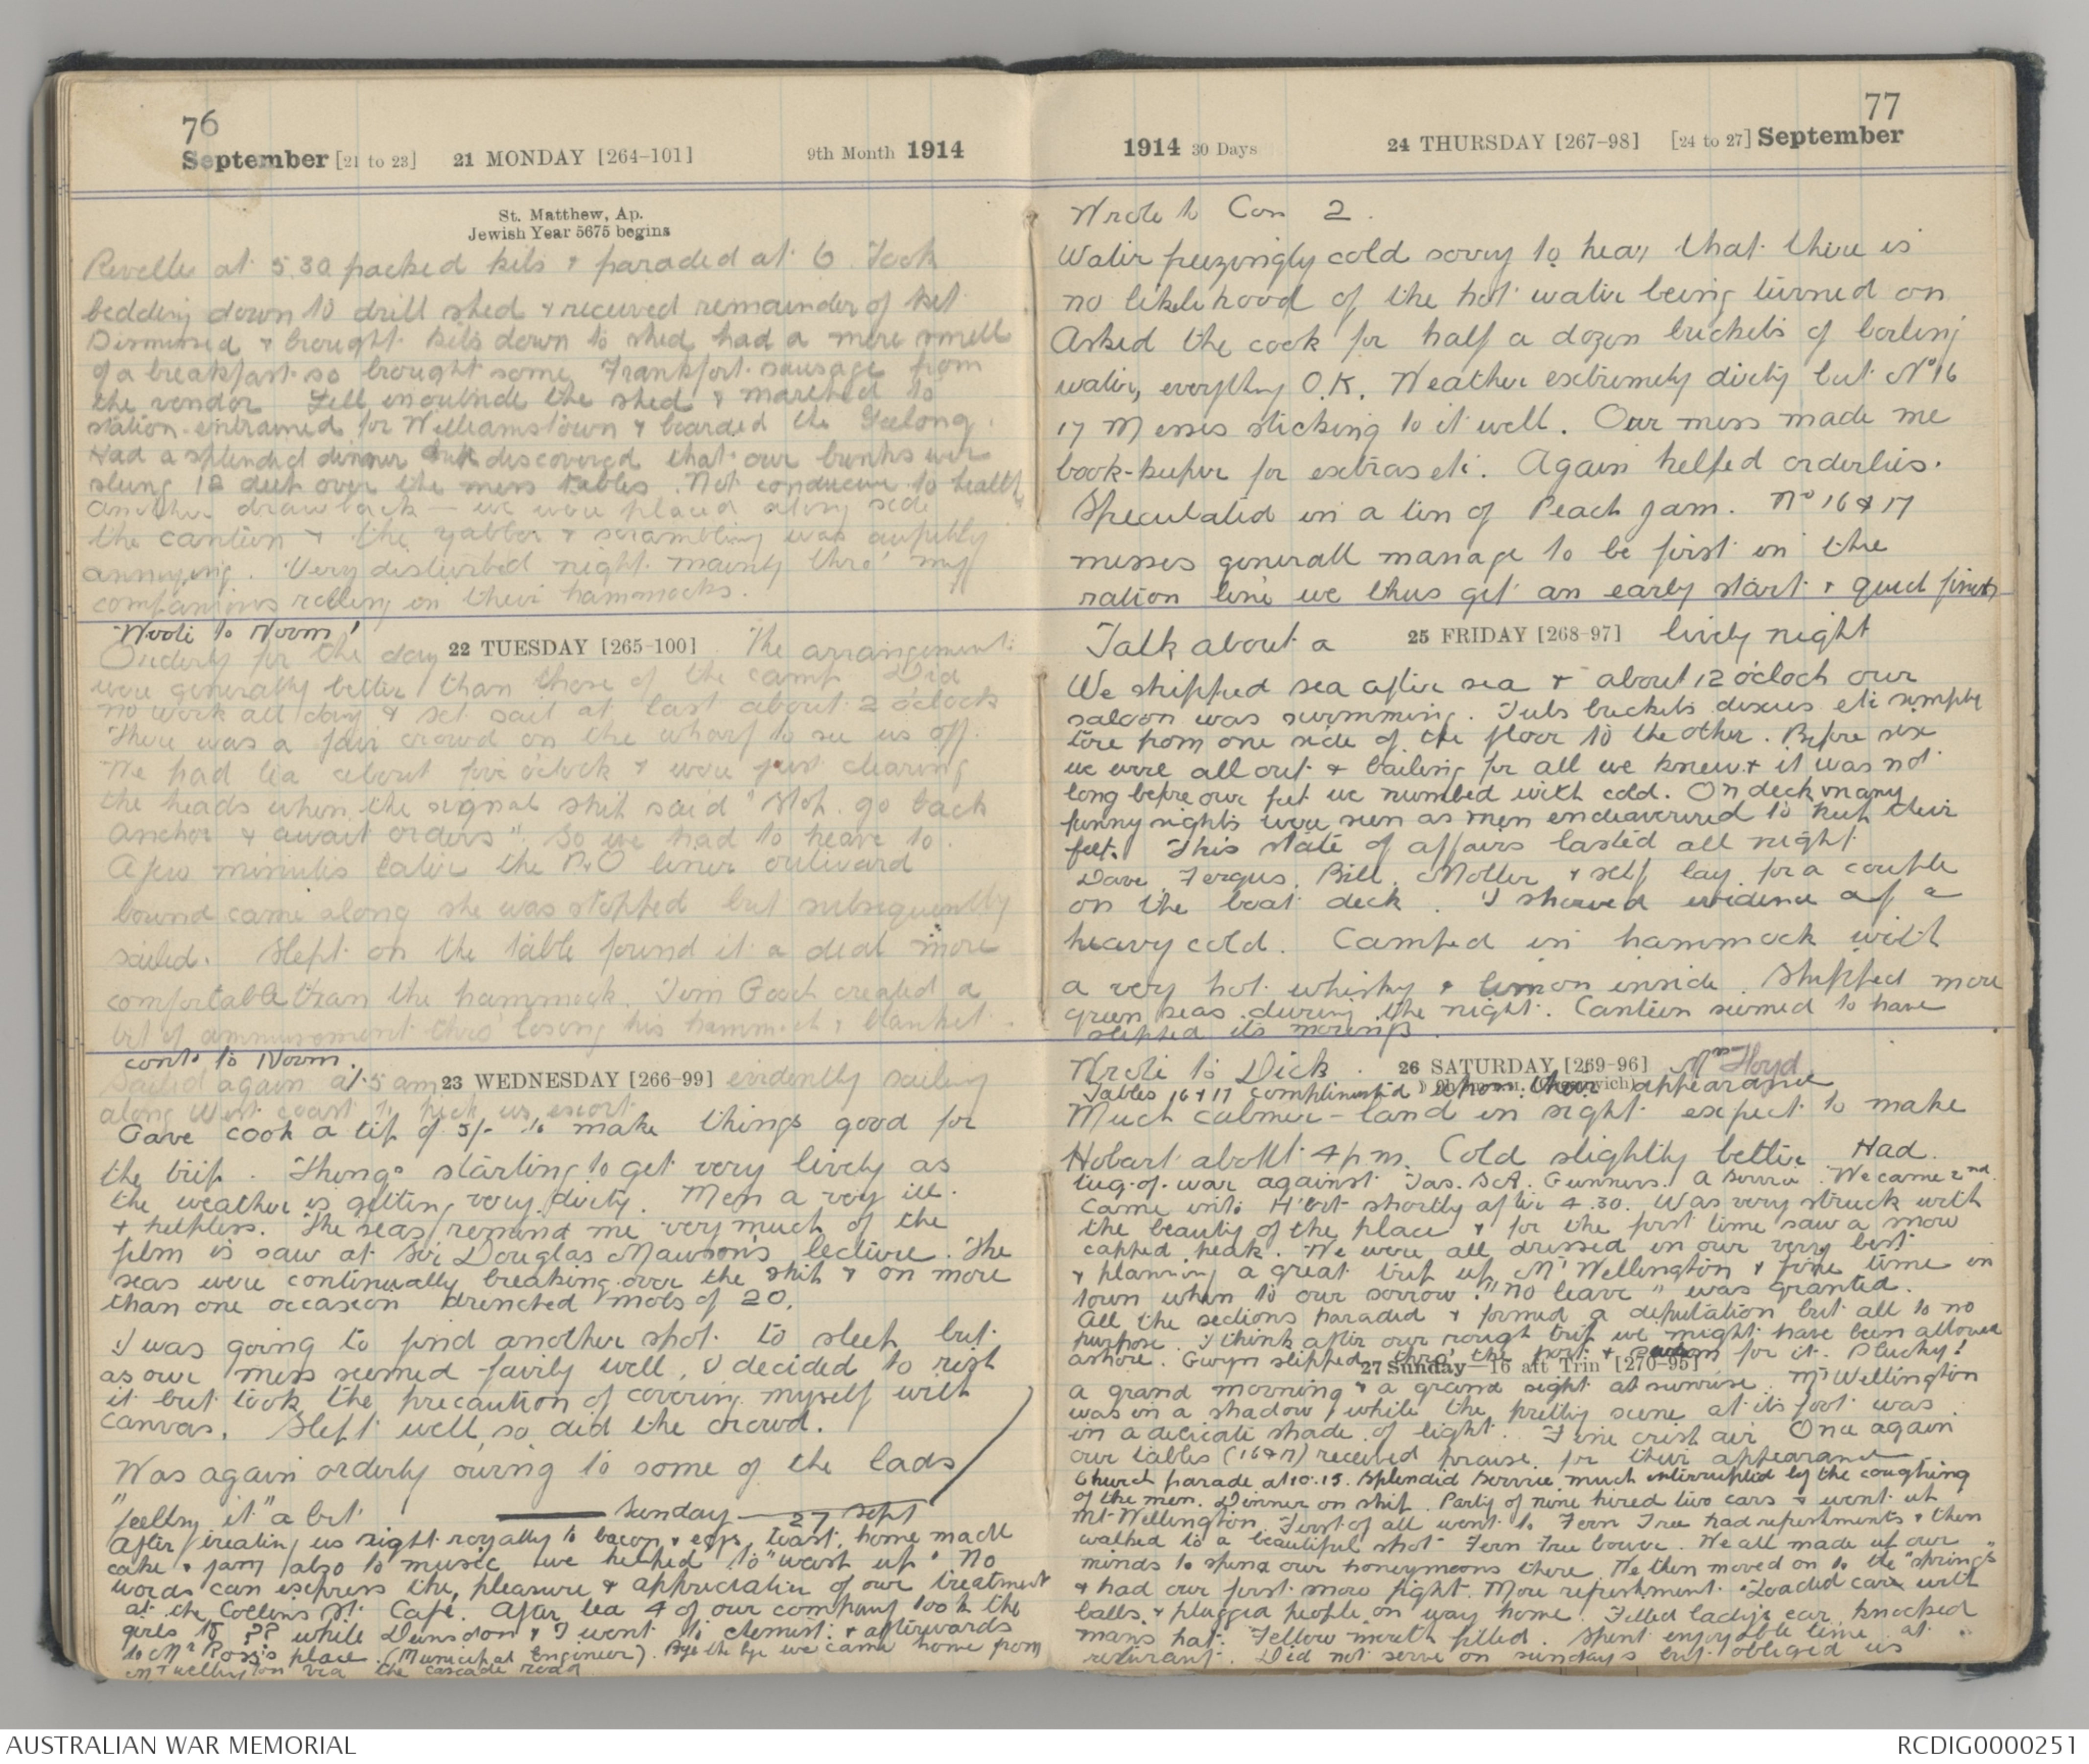 76
September [21 to 23] 21 MONDAY [264-101] 9th Month 1914
St. Matthew, Ap.
Jewish Year 5675 begins
Revelle at 5.30 packed kits & paraded at 6 Took
bedding down to drill shed & received remainder of kit
Dismissed & brought kits down to shed had a mere smell
of a breakfast so brought some Frankfort sausage from
the vendor Fell in outside the shed & marched to
station entrained for Williamstown & boarded the Geelong.
Had a splendid dinner but discovered that our bunks were
slung 12 deep over the mess tables. Not conducive to health
another drawback - we were placed along side
the canteen & the yabber & scrambling was awfully
annoying. Very disturbed night mainly thro' my
companions rolling in their hammocks.
Wrote to Norm!
Orderly for the day 22 TUESDAY [265-100] The arrangements
were generally better than those of the camp Did
no work all day & set sail at last about 2 o'clock
There was a fair crowd on the wharf to see us off.
We had tea about five o'clock & were just clearing
the heads when the signal ship said "Stop. go back
Anchor & await orders". So we had to heave to.
A few minutes later the P&O liner outward
bound came along she was stopped but subsequently
sailed. Slept on the table found it a deal more
comfortable than the hammock. Tom Gooch created a
bit of ammusement thro' losing his hammock & blanket.
cont to Norm.
Sailed again at 5 am 23 WEDNESDAY [266-99] evidently sailing
along West coast to pick us escort
Gave cook a tip of 5/- to make things good for
the trip. Things starting to get very lively as
the weather is getting very dirty. Men a very ill.
& helpless. The seas remind me very much of the
film is saw at Sir Douglas Mawson's lecture. The
seas were continually breaking over the ship & on more
than one occasion drenched mobs of 20.
I was going to find another spot to sleep but
as our mess seemed fairly well, I decided to risk
it but took the precaution of covering myself with
canvas. Slept well, so did the crowd.
Was again orderly owing to some of the lads
"feeling it" a bit
Sunday 27 Sept
After treating us right royally to bacon & eggs, toast, home made
cake & jam also to music we helped to "wash up". No
words can express the pleasure & appreciation of our treatment
at the Collins St. Café. After tea 4 of our company took the
girls to ?? while Dunsdon & I went to chemist: & afterwards
to Mr Ross's place. (Municipal Engineer). Bye the bye we came home from
Mt Wellington via the cascade road
77
1914 30 Days 24 THURSDAY [267-98] [24 to 27] September
Wrote to Con 2.
Water freezingly cold sorry to hear that there is
no likelihood of the hot water being turned on
Asked the cook for half a dozen buckets of boiling
water, everything O.K. Weather extremely dirty but No 16
17 Messes sticking to it well. Our mess made me
book-keeper for extras etc. Again helped orderlies.
Speculated in a tin of Peach Jam. No 16 & 17
messes generall manage to be first in the
ration line we thus get an early start &
Talk about a 25 FRIDAY [268-97] lively night
We shipped sea after sea & about 12 o'clock our
saloon was swimming. Tubs buckets dixies etc simply
tore from one side of the floor to the other. Before six
we were all out & bailing for all we knew & it was not
long before our feet we numbed with cold. On deck many
funny sights were seen as men endeavoured to keep their
feet. This state of affairs lasted all night
Dave, Fergus, Bill, Motter & self lay for a couple
on the boat deck. I showed evidence of a
heavy cold. Camped in hammock with
a very hot whisky & lemon inside. Shipped more
green seas during the night. Canteen seemed to have
slipped its moorings.
Wrote to Dick. 26 SATURDAY [269-96] Mrs Floyd
Tables 16 & 17 complimented upon their appearance
Much calmer - land in sight expect to make
Hobart about 4 p m. Cold slightly better Had
tug-of-war against Tas. Gunners. We came 2nd.
Came into H'bt shortly after 4.30. Was very struck with
the beauty of the place & for the first time saw a snow
capped peak. We were all dressed in our very best
& planning a great trip up Mt Wellington & fine time in
town when to our sorrow "no leave" was granted.
All the sections paraded & formed a deputation but all to no
purpose. I think after our rough trip we might have been allowed
ashore. Gwyn slipped thro' the port & for it. Plucky!
27 Sunday—16 aft Trin [270-95]
a grand morning & a grand sight at sunrise. Mt Wellington
was in a shadow while the pretty scene at its foot was
in a delicate shade of light. Fine crisp air Once again
our tables (16 & 17) received praise for their appearance
Church parade at 10.15. Splendid service much interrupted by the coughing
of the men. Dinner on ship. Party of nine hired two cars & went up
Mt-Wellington. First of all went to Fern Tree had refreshments & then
walked to a beautiful spot Fern Tree bower. We all made up our
minds to spend our honeymoons there. We then moved on to the "springs"
& had our first snow fight. More refreshment. Loaded cars with
balls & plugged people on way home. Filled lady's ear, knocked
mans hat. Fellow mouth filled. Spent enjoyable time at
resturant. Did not serve on sundays but obliged us
AUSTRALIAN WAR MEMORIAL
RCDIG0000251